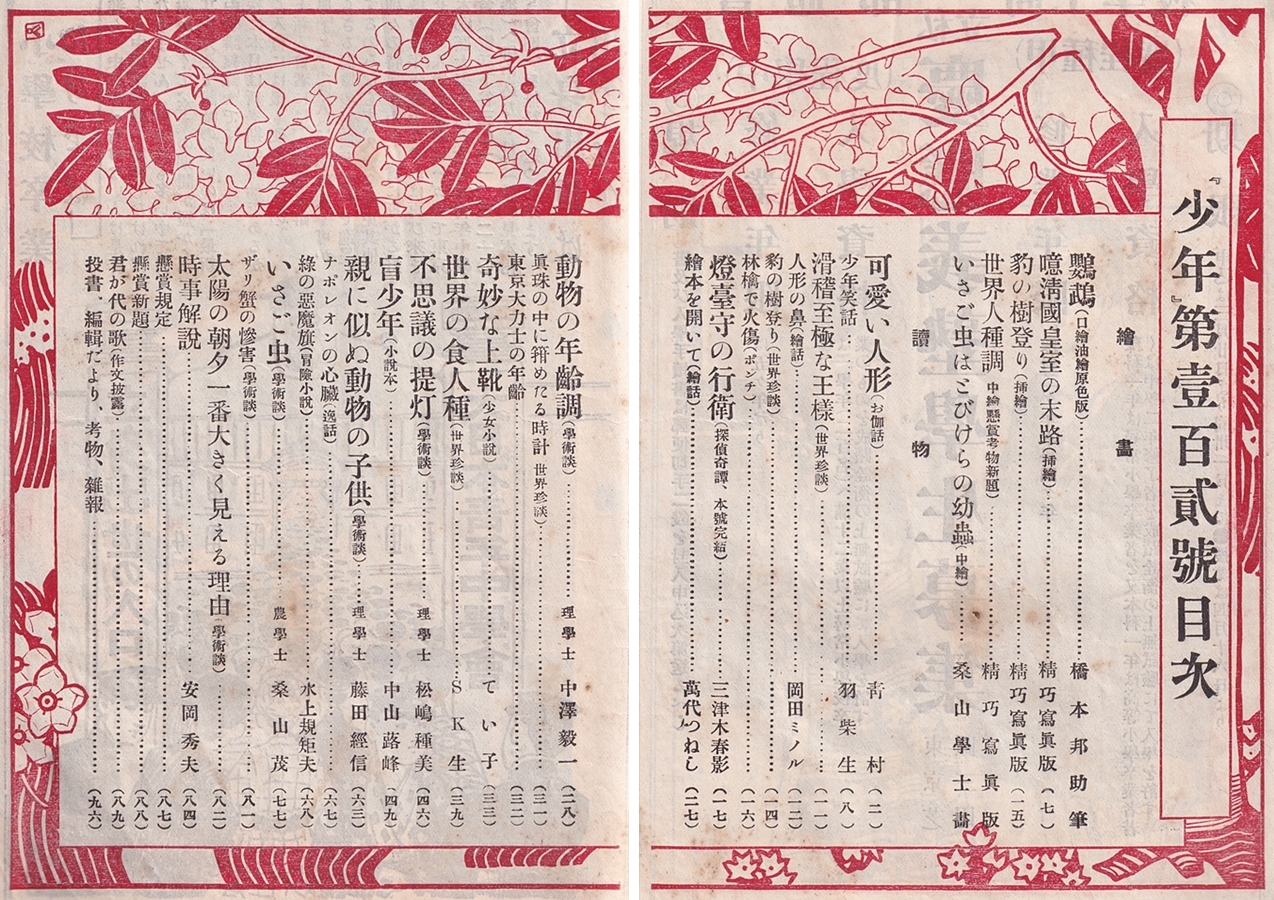 『少年』第壹百貳號目次
繪畫
鸚鵡(口繪油繪原色版) 橋本邦助筆
噫淸國皇室の末路(挿繪) 精巧寫眞版(七)
豹の樹登り(挿繪) 精巧寫眞版(一五)
世界人種調 中繪懸賞考物新題 精巧寫眞版
いさご虫はとびけらの幼蟲(中繪) 桑山學士畵
讀物
可愛い人形(お伽話) 靑村(二)
少年笑話 羽柴生(八)
滑稽至極な王樣(世界珍談) (一一)
人形の鼻(繪話) 岡田ミノル(一二)
豹の樹登り(世界珍談) (一四)
林檎で火傷(ポンチ) (一六)
燈臺守の行衛(探偵奇譚、本號完結) 三津木春影(一七)
繪本を開いて(繪話) 萬代つねし(二七)
動物の年齡調(學術談) 理學士 中澤毅一(二八)
眞珠の中に籍めたる時計 世界珍談) (三一)
東京大力士の年齡 (三二)
奇妙な上靴(少女小說) てい子(三三)
世界の食人種(世界珍談) SK生(三九)
不思議の提灯(學術談) 理學士 松嶋種美(四六)
盲少年(小說本) 中山蕗峰(四九)
親に似ぬ動物の子供(學術談) 理學士 藤田經信(六三)
ナポレオンの心臟(逸話) (六七)
綠の惡魔旗(冒險小說) 水上規矩夫(六八)
いさご虫(學術談) 農學士 桑山茂(七七)
ザリ蟹の慘害(學術談) (八一)
太陽の朝夕一番大きく見える理由(學術談) (八二)
時事解說 安岡秀夫(八四)
懸賞規定 (八七)
懸賞新題 (八八)
君が代の歌(作文披露) (八九)
投書、編輯だより、考物、雜報 (九六)